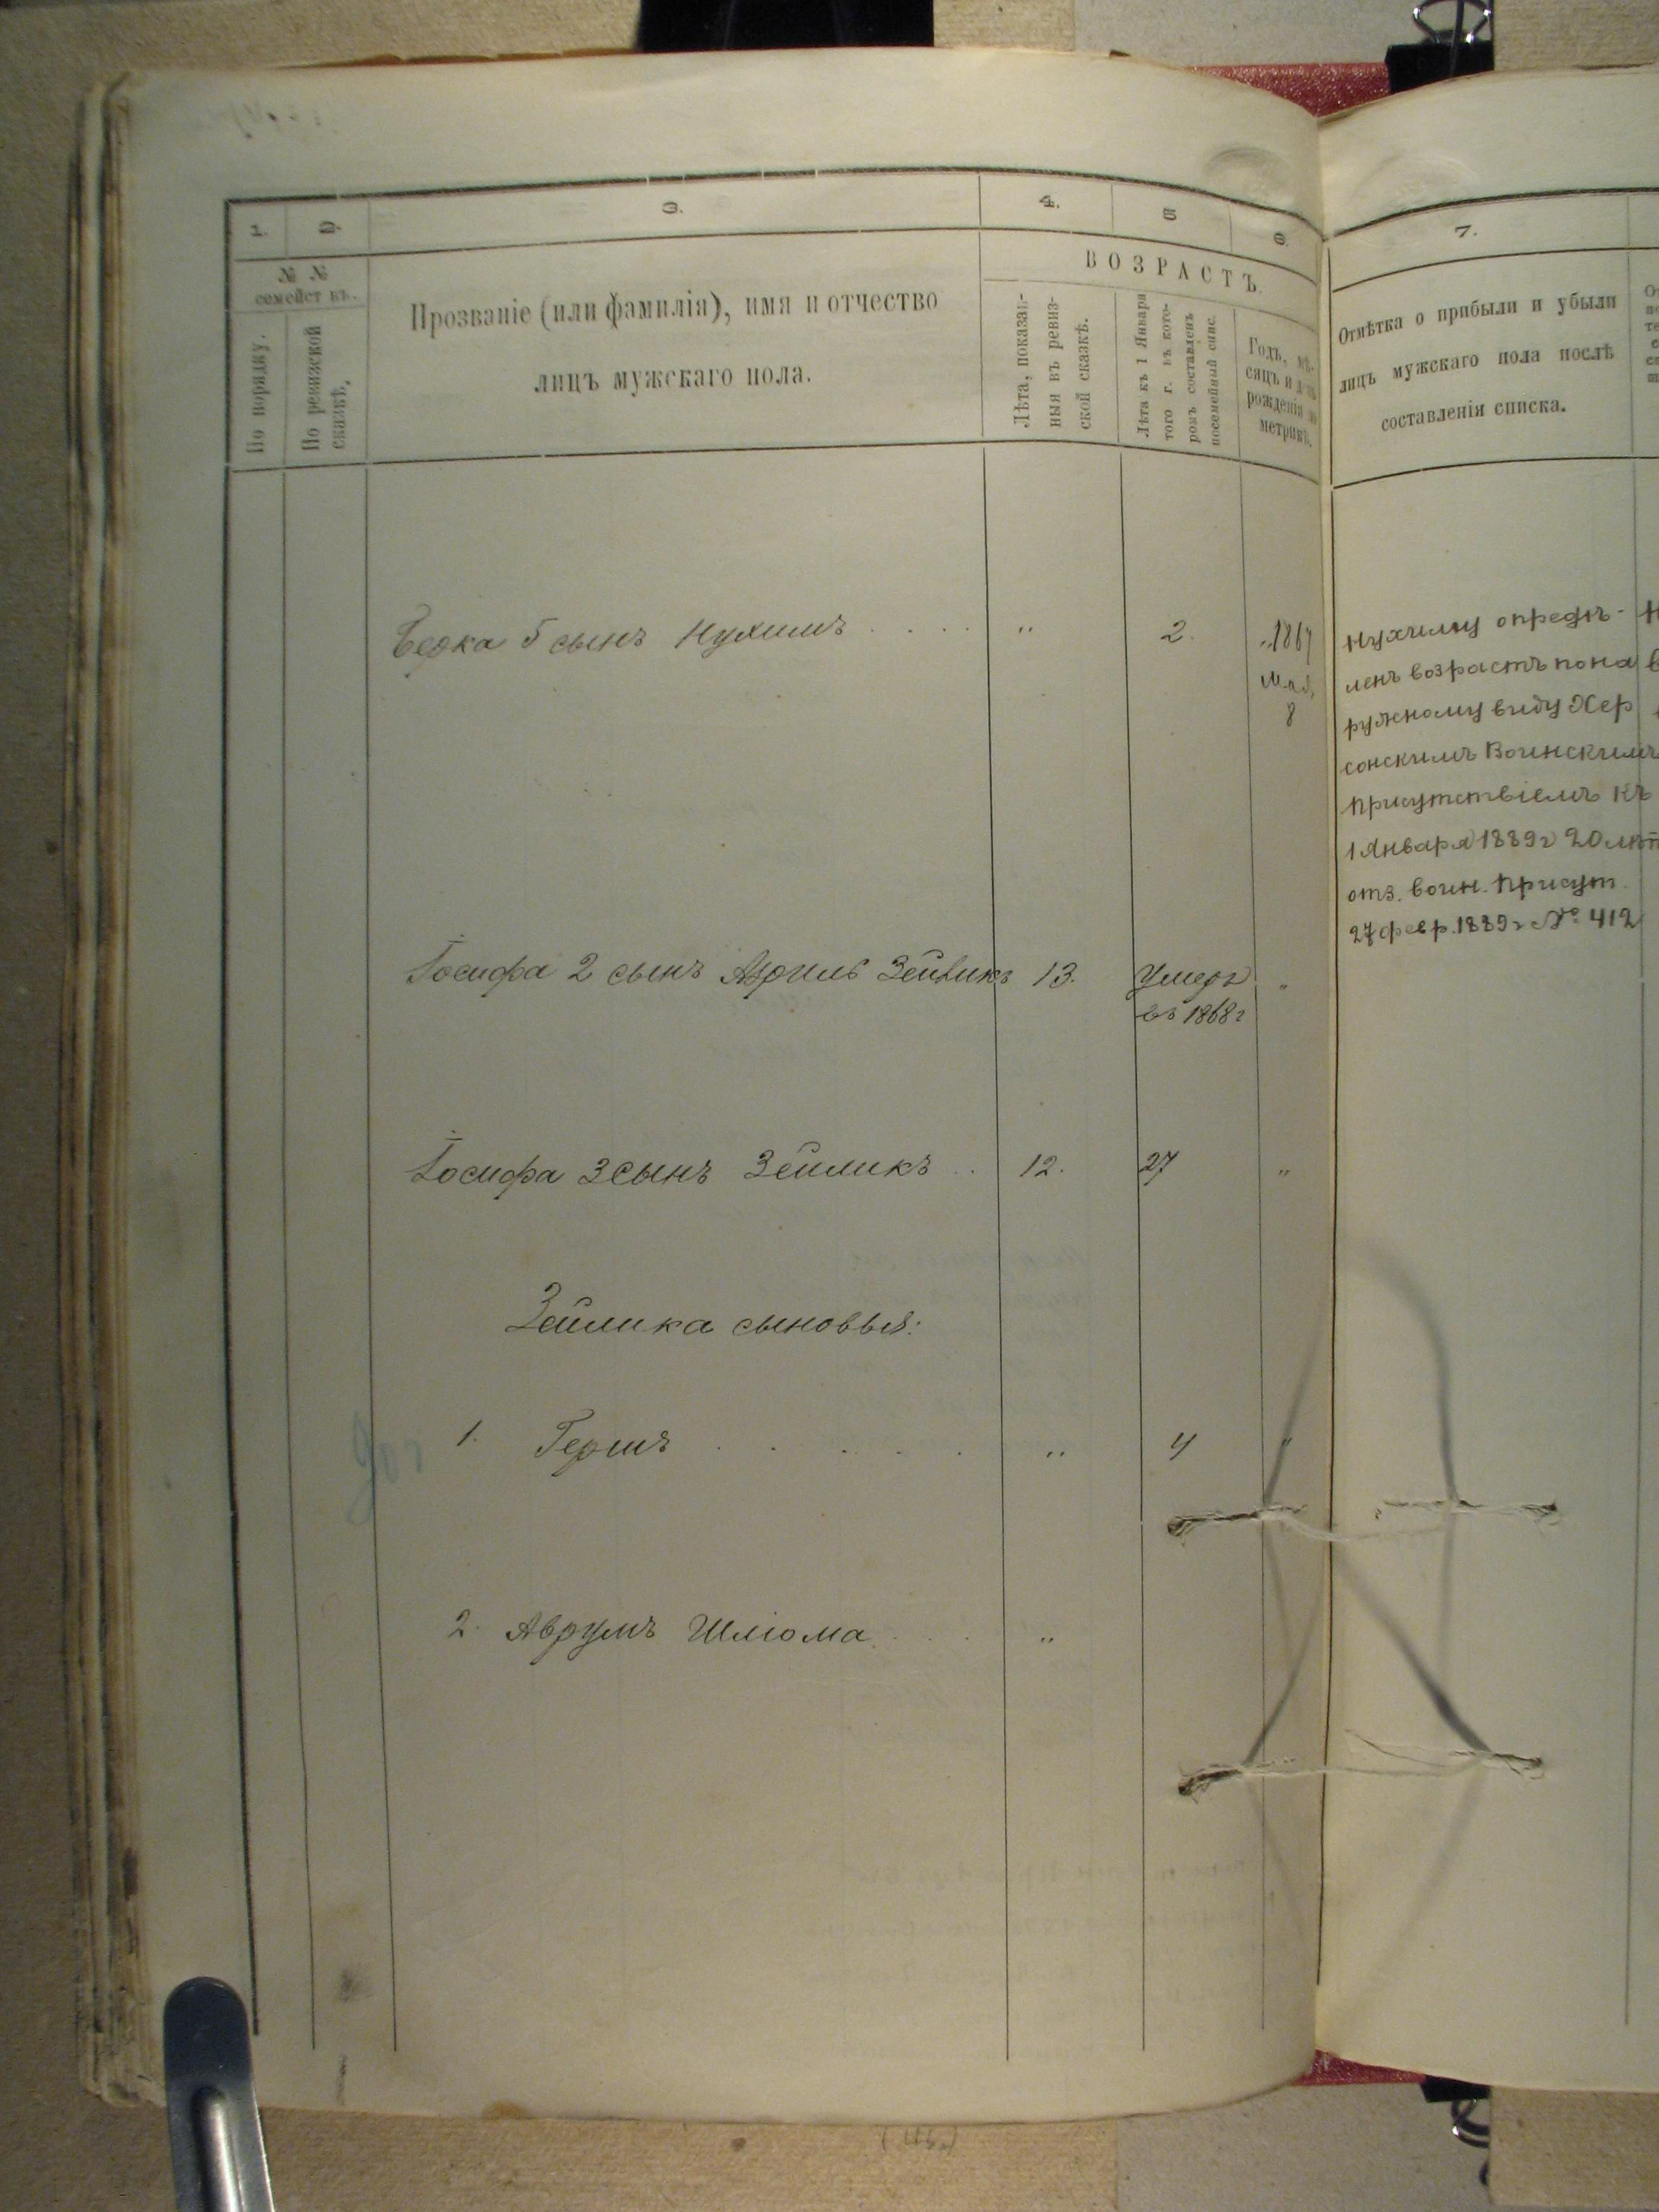 1.
2.
3.
4.
5
6.
7.
№ №
семейст въ.
По порядку.
По ревизской
сказкѣ.
Прозваніе (или фамилія), имя и отчество
лицъ мужскаго пола.
ВОЗРАСТЪ.
Лѣта, показан-
ныя въ ревиз-
ской сказкѣ.
Лѣта къ 1 Января
того г. въ кото-
ромъ составленъ
посемейный спис.
Годъ, мѣ-
сяцъ и день
рожденія по
метрикѣ.
Отмѣтка о прибыли и убыли
лицъ мужскаго пола послѣ
составленія списка.
Берка 5 сынъ Нухимъ
2.
Мая
8
Нухиму опредѣ-
ленъ возрастъ по на
ружному виду Хер
сонскимъ Воинскимъ
Присутствіемъ къ
1 Января 1889 г 20 лѣт
отз. воин. Присут.
27 февр. 1889 г № 412
Іосифа 2 сынъ 13. Умеръ "
въ 1868 г
Іосифа 3 сынъ Зейликъ 12. 27 "
Зейлика сыновья:
1. Гершъ " 4 "
2. Аврумъ Шлiома "